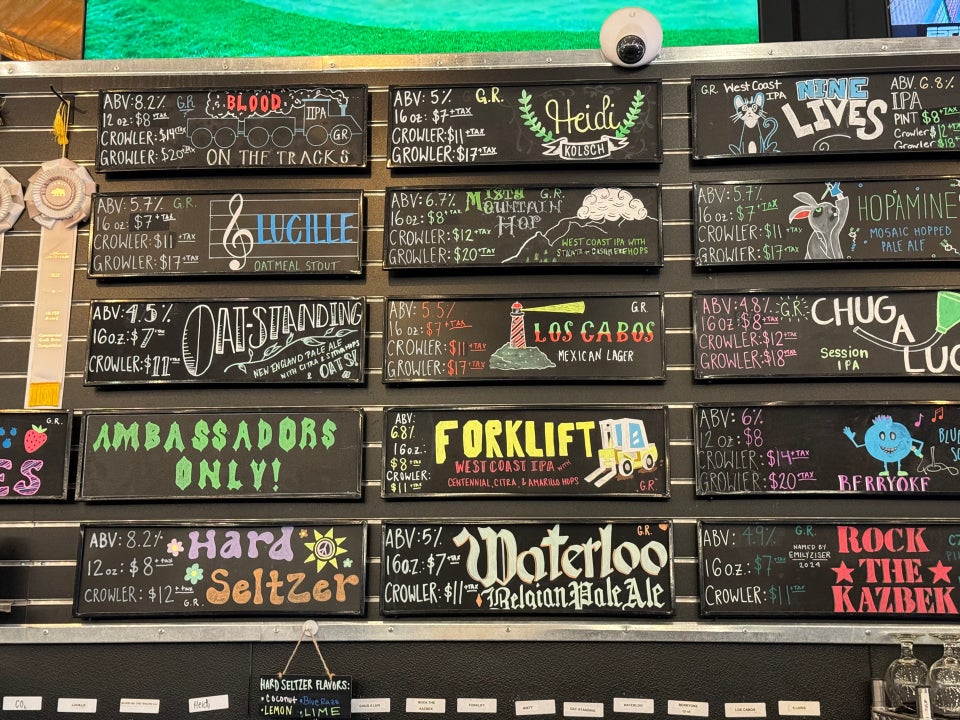 ESPN
ABV: 8.2% G.R.
12 oz: $8 +TAX
CROWLER: $14 +TAX
GROWLER: $20 +TAX
BLOOD
IIPA
GR
ON THE TRACKS
ABV: 5% G.R.
16 oz: $7 +TAX
CROWLER: $11 +TAX
GROWLER: $17 +TAX
Heidi
KOLSCH
G.R. West Coast IPA
NINE LIVES
ABV: 6.8%
IPA
PINT $8 +TAX
Crowler $12 +TAX
Growler $18 +TAX
ABV: 5.7% G.R.
16 oz: $7 +TAX
CROWLER: $11 +TAX
GROWLER: $17 +TAX
LUCILLE
OATMEAL STOUT
ABV: 6.7%
16 oz: $8 +TAX
CROWLER: $12 +TAX
GROWLER: $20 +TAX
G.R.
MOUNTAIN
HOP
WEST COAST IPA WITH
STRATA + CASHMERE HOPS
ABV: 5.7%
16 oz: $7 +TAX
CROWLER: $11 +TAX
GROWLER: $17 +TAX
HOPAMINE
MOSAIC HOPPED
PALE ALE
ABV: 4.5%
16 oz: $7 +TAX
CROWLER: $11 +TAX
OAT-STANDING
NEW ENGLAND PALE ALE
WITH CITRA & STRATA HOPS
& OATS!
ABV: 5.5% G.R.
16 oz: $7 +TAX
CROWLER: $11 +TAX
GROWLER: $17 +TAX
LOS CABOS
MEXICAN LAGER
ABV: 4.8% G.R.
16 oz: $8 +TAX
CROWLER: $12 +TAX
GROWLER: $18 +TAX
CHUG
A
LUG
Session
IPA
G.R.
ES
AMBASSADORS
ONLY!
ABV:
6.8%
16 oz:
$8 +TAX
CROWLER:
$11 +TAX
FORKLIFT
WEST COAST IPA WITH
CENTENNIAL, CITRA, & AMARILLO HOPS
G.R.
ABV: 6%
12 oz: $8
CROWLER: $14 +TAX
GROWLER: $20 +TAX
BLUE
SO
BERRYOKE
ABV: 8.2%
12 oz: $8 +TAX
CROWLER: $12 +TAX
G.R.
Hard
Seltzer
ABV: 5% G.R.
16 oz: $7 +TAX
CROWLER: $11 +TAX
Waterloo
Belgian Pale Ale
ABV: 4.9% G.R.
16 oz: $7 +TAX
CROWLER: $11 +TAX
NAMED BY
EMILY ZISER
2024
ROCK
THE
KAZBEK
CZ
PI
HARD SELTZER FLAVORS:
• Coconut • Blue Razz
• LEMON • LIME
LUCILLE
Heidi
CHUG A LUG
ROCK THE
KAZBEK
FORKLIFT
OAT-STANDING
WATERLOO
BERRYOKE
12 oz
LOS CABOS
9 LIVES